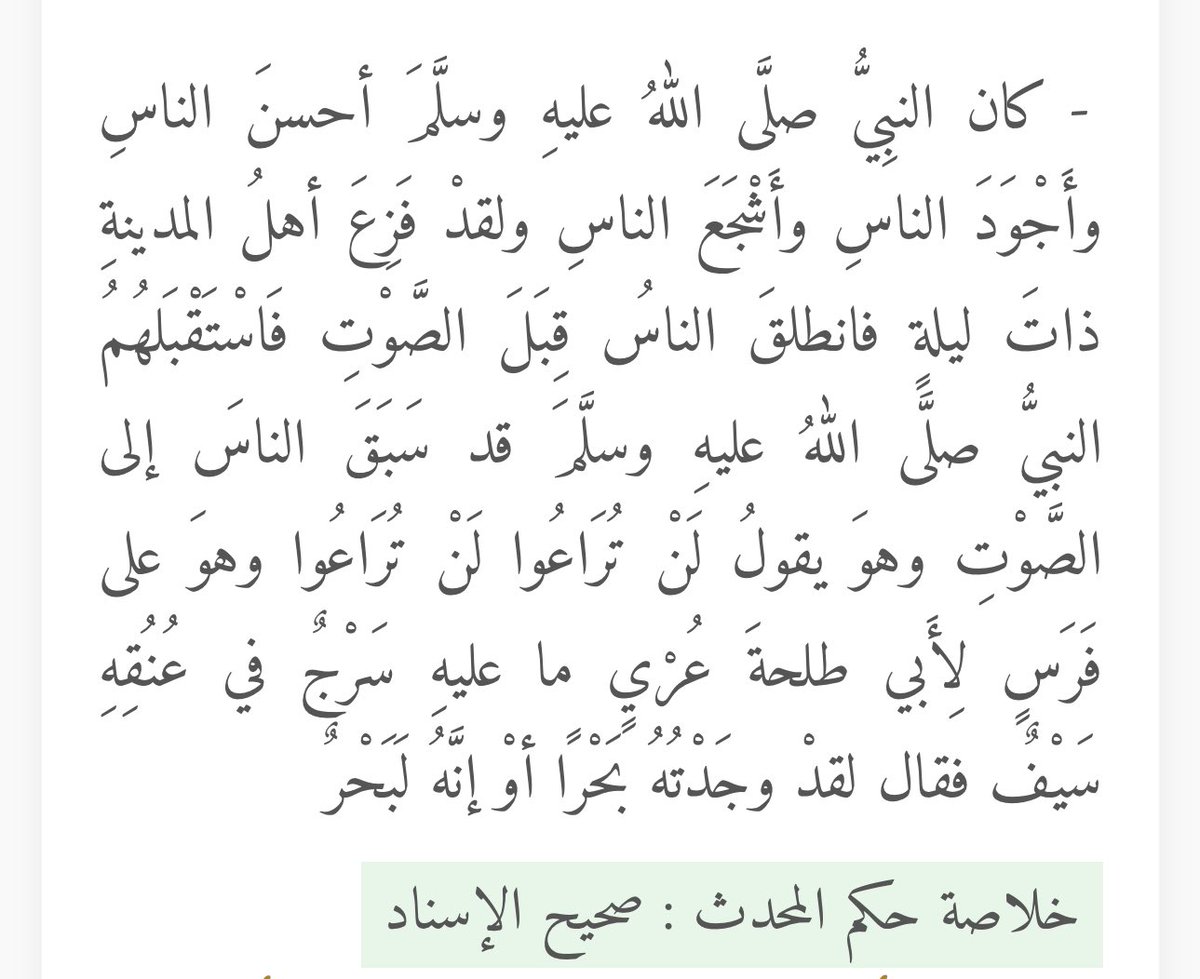 - كان النبِيُّ صلَّى اللهُ عليهِ وسلَّمَ أحسنَ الناسِ
وأَجْوَدَ الناسِ وأَشْجَعَ الناسِ ولقدْ فَزِعَ أهلُ المدينةِ
ذاتَ ليلةٍ فانطلقَ الناسُ قِبَلَ الصَّوْتِ فَاسْتَقْبَلَهُمُ
النبيُّ صلَّى اللهُ عليهِ وسلَّمَ قد سَبَقَ الناسَ إلى
الصَّوْتِ وهوَ يقولُ لَنْ تُرَاعُوا لَنْ تُرَاعُوا وهوَ على
فَرَسٍ لِأَبي طلحةَ عُرْيٍ ما عليهِ سَرْجٌ في عُنُقِهِ
سَيْفٌ فقال لقدْ وجَدْتُهُ بَحْرًا أوْ إنَّهُ لَبَحْرٌ
خلاصة حكم المحدث : صحيح الإسناد